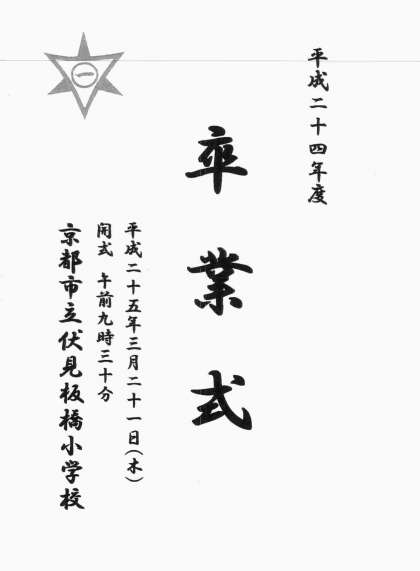 平成二十四年度
卒業式
平成二十五年三月二十一日(木)
開式 午前九時三十分
京都市立伏見板橋小学校
一